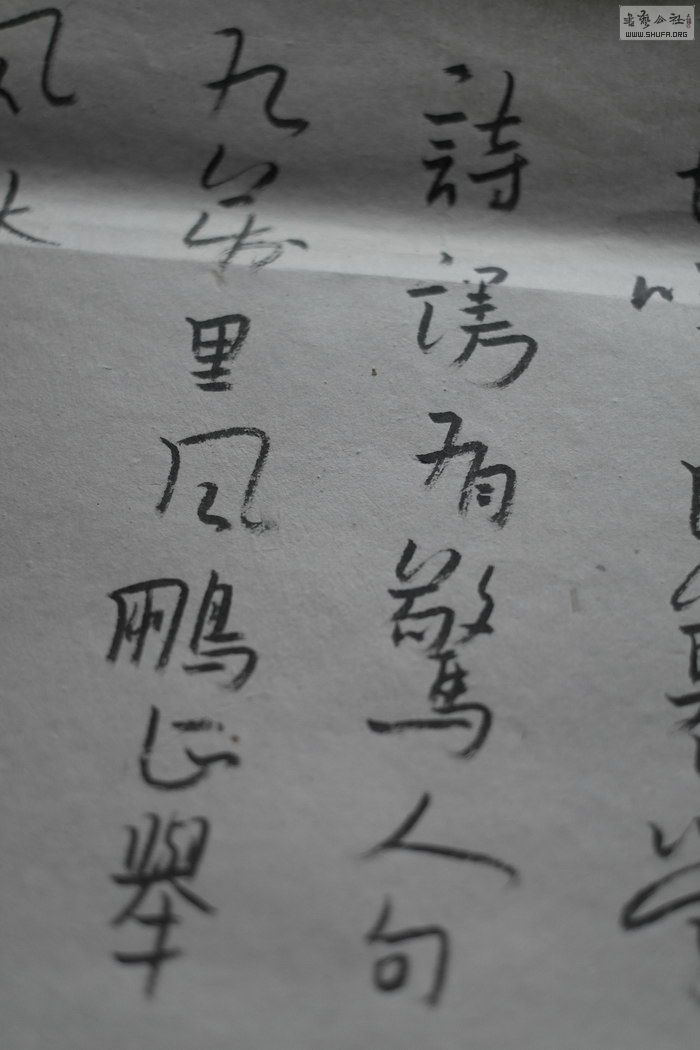 詩謾有驚人句
九萬里风鵬正舉
风
書藝公社
WWW.SHUFA.ORG